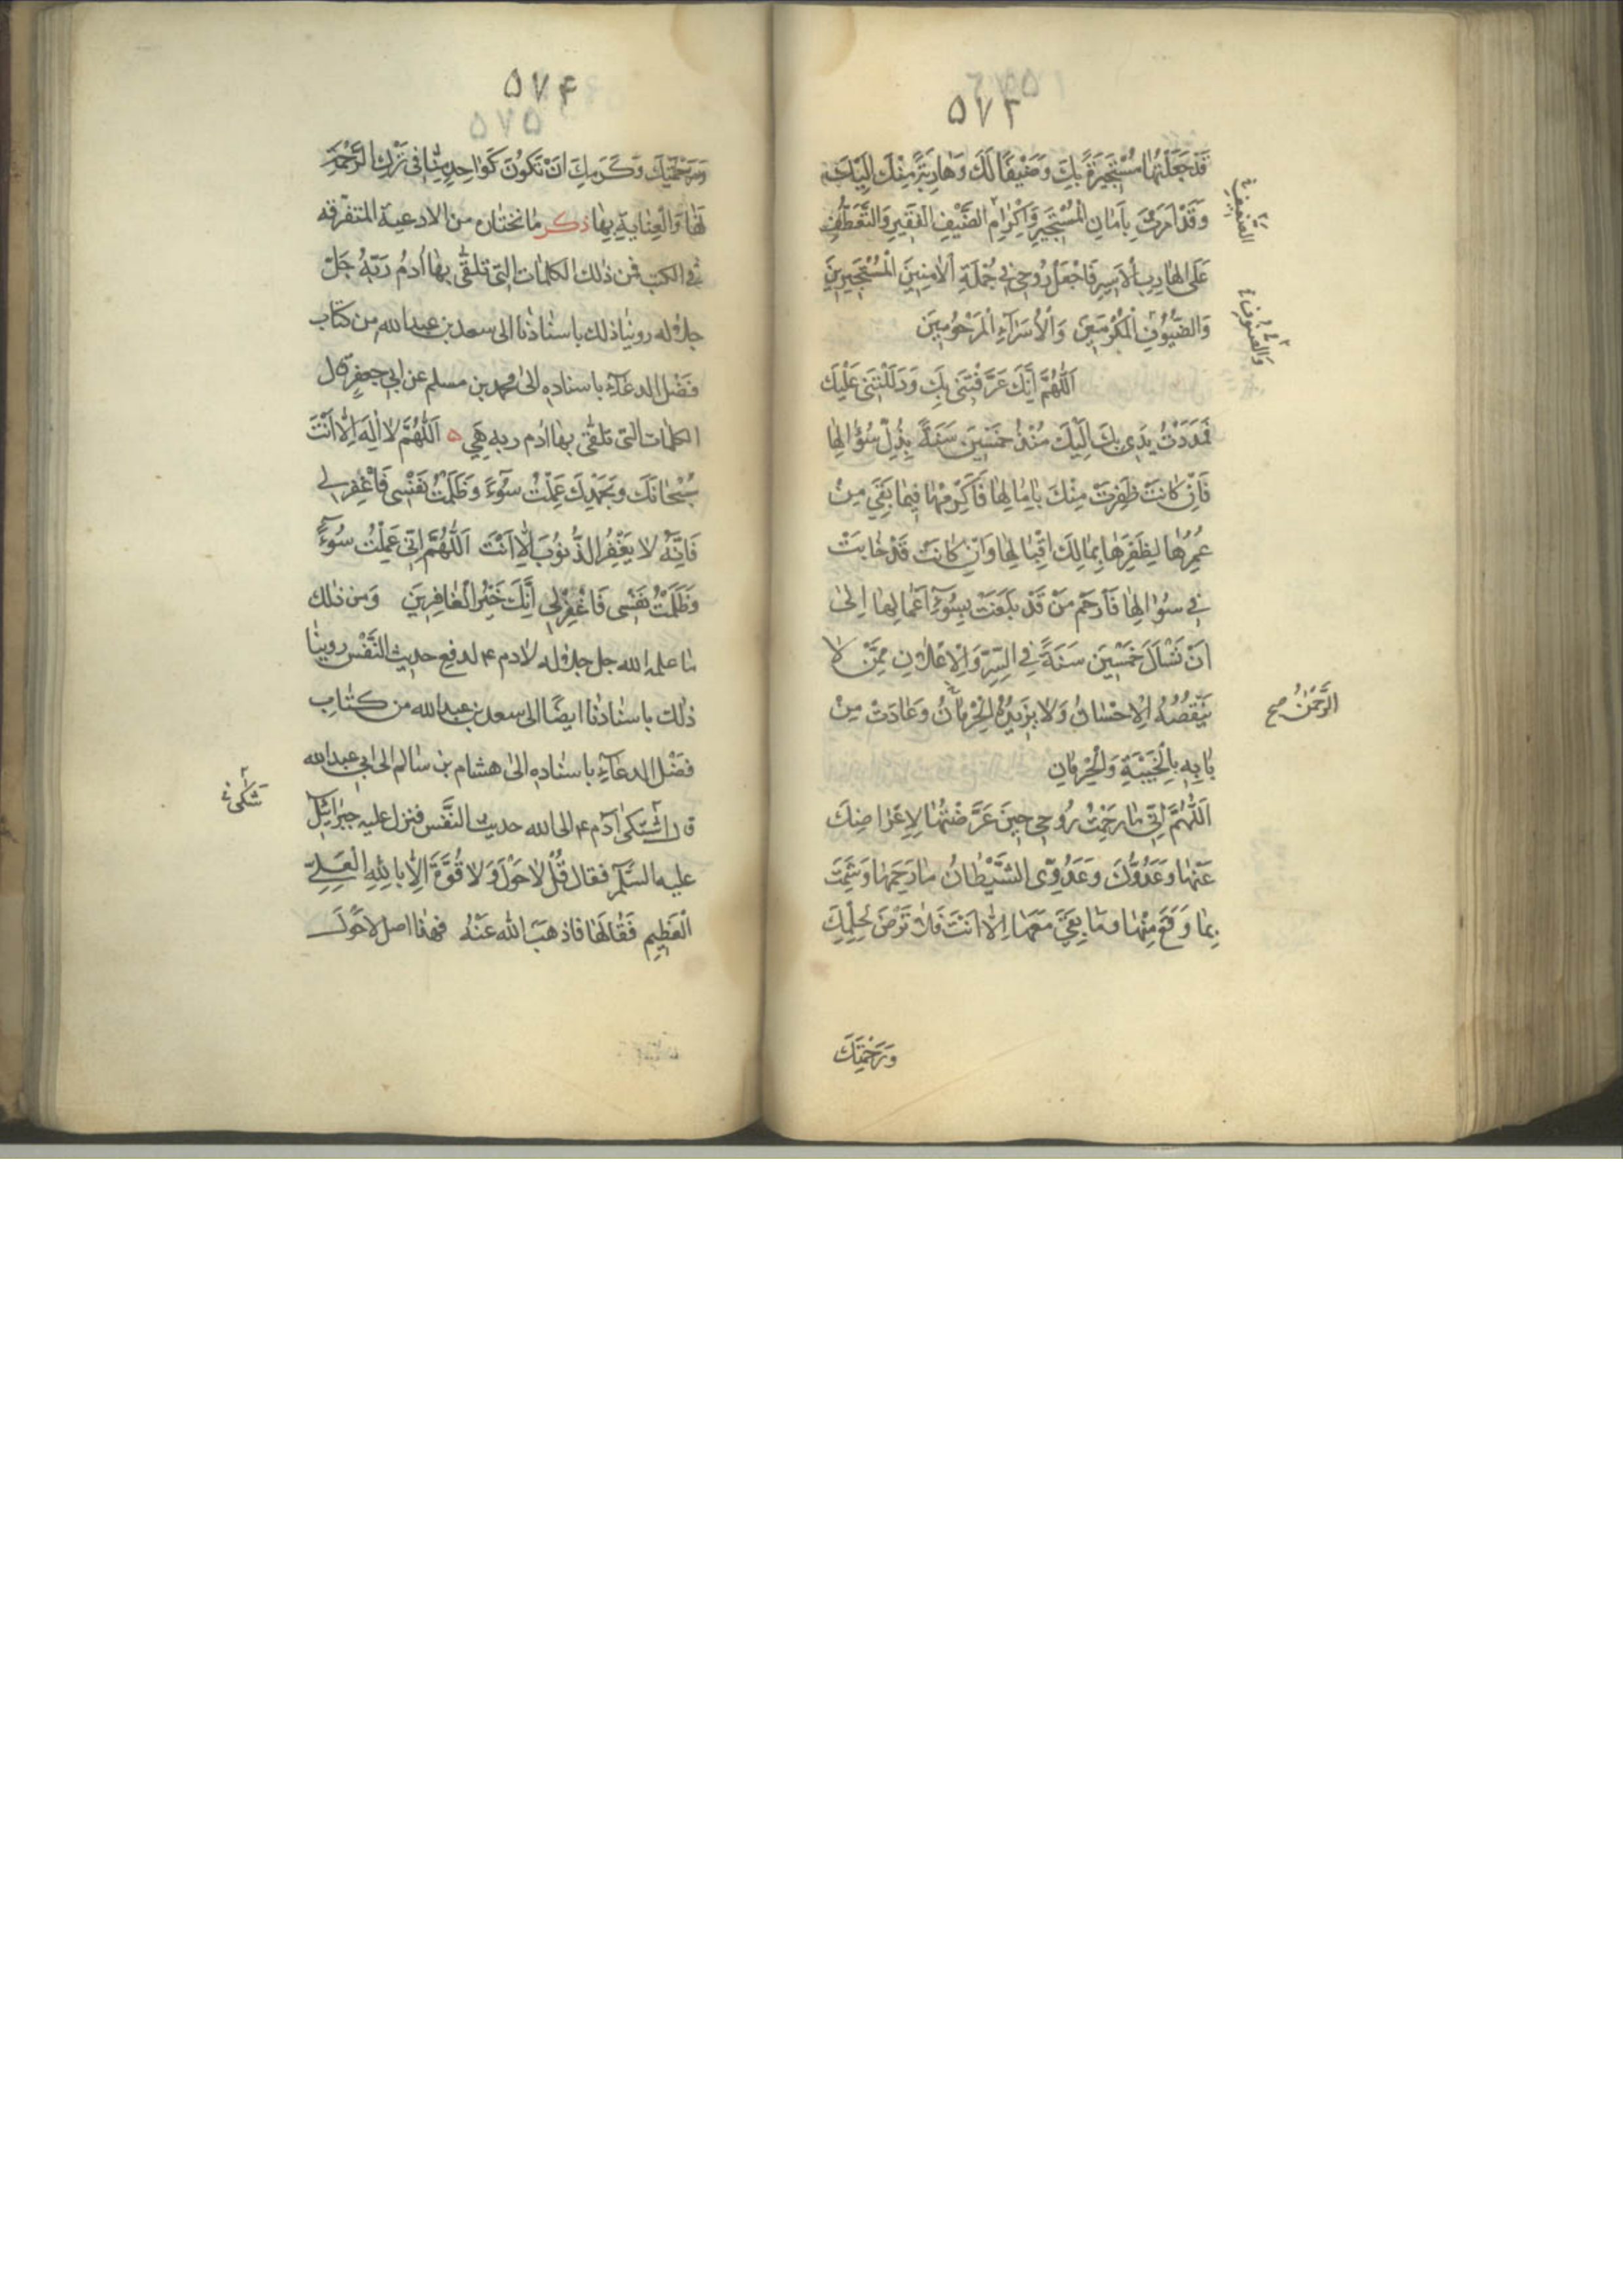 ۵۷۳
قَدْ جَعَلْتُهَا مُسْتَجِيرَةً بِكَ وَضَيْفًا لَكَ وَهَارِبَةً مِنْكَ اِلَيْكَ
وَقَدْ اَمَرْتَ بِاَمَانِ الْمُسْتَجِيرِ وَاِكْرَامِ الضَّيْفِ الْفَقِيرِ وَالتَّعَطُّفِ
عَلَى الْهَارِبِ الْاَسِيرِ فَاجْعَلْ رُوحِي فِي جُمْلَةِ الْاٰمِنِينَ الْمُسْتَجِيرِينَ
وَالضُّيُوفِ الْمُكْرَمِينَ وَالْاُسَرَآءِ الْمَرْحُومِينَ
اَللّٰهُمَّ اِنَّكَ عَرَّفْتَنِي بِكَ وَدَلَلْتَنِي عَلَيْكَ
فَمَدَدْتُ يَدِي بِكَ اِلَيْكَ مُنْذُ خَمْسِينَ سَنَةً بِذُلِّ سُؤَالِهَا
فَاِنْ كَانَتْ ظَفِرَتْ مِنْكَ بِاٰمَالِهَا فَاَكْرِمْهَا فِيمَا بَقِيَ مِنْ
عُمُرِهَا لِيُظَفِّرَهَا بِمَا لَكَ اِقْبَالِهَا وَاِنْ كَانَتْ قَدْ خَابَتْ
فِي سُؤَالِهَا فَارْحَمْ مَنْ قَدْ بَلَغَتْ بِسُوٓءِ اَعْمَالِهَا اِلٰى
اَنْ تَسْأَلَ خَمْسِينَ سَنَةً فِي السِّرِّ وَالْاِعْلَانِ مِمَّنْ لَا
يَنْقُصُهُ الْاِحْسَانُ وَلَا يَزِيدُهُ الْحِرْمَانُ وَعَادَتْ مِنْ
بَابِهِ بِالْخَيْبَةِ وَالْحِرْمَانِ
اَللّٰهُمَّ اِنِّي مَا رَحِمْتُ رُوحِي حِينَ عَرَّضْتُهَا لِاِعْرَاضِكَ
عَنْهَا وَعَدُوُّكَ وَعَدُوِّي الشَّيْطَانُ مَا رَحِمَهَا وَشَمِتَ
بِمَا وَقَعَ مِنْهَا وَمَا بَقِيَ مَعَهَا اِلَّا اَنْتَ فَلَا تَرْضَ لِحِلْمِكَ
وَرَحْمَتِكَ
الرَّحْمٰنُ صح
۵۷۴
۵۷۵
وَرَحْمَتِكَ وَكَرَمِكَ اَنْ تَكُونَ كَوَاحِدٍ مِنَّا فِي تَرْكِ الرَّحْمَةِ
لَهَا وَالْعِنَايَةِ بِهَا ذكر ما نختاره من الادعية المتفرقه
في الكتب فمن ذلك الكلمات التي تلقّى بها اٰدمُ ربّهُ جَلّ
جلاله روينا ذلك باسنادنا الى سعد بن عبدالله من كتاب
فضل الدعآء باسناده الى محمد بن مسلم عن ابي جعفر قال
الكلمات التي تلقّى بها اٰدم ربه هي ۵ اَللّٰهُمَّ لَا اِلٰهَ اِلَّا اَنْتَ
سُبْحَانَكَ وَبِحَمْدِكَ عَمِلْتُ سُوٓءً وَظَلَمْتُ نَفْسِي فَاغْفِرْ لِي
فَاِنَّهُ لَا يَغْفِرُ الذُّنُوبَ اِلَّا اَنْتَ اَللّٰهُمَّ اِنِّي عَمِلْتُ سُوٓءً
وَظَلَمْتُ نَفْسِي فَاغْفِرْ لِي اِنَّكَ خَيْرُ الْغَافِرِينَ وَمن ذلك
ما علمه الله جل جلاله لاٰدم ۴ لدفع حديث النَّفْس روينا
ذلك باسنادنا ايضًا الى سعد بن عبدالله من كتاب
فضل الدعآء باسناده الى هشام بن سالم الى ابي عبدالله
قال اشتكى اٰدم ۴ الى الله حديث النَّفْس فنزل عليه جبرائيل
عليه السّلم فقال قُلْ لَا حَوْلَ وَلَا قُوَّةَ اِلَّا بِاللهِ الْعَلِيِّ
الْعَظِيمِ فَقَالَهَا فاذهبَ الله عَنْهُ فهذا اصل لا حَوْلَ
شكى